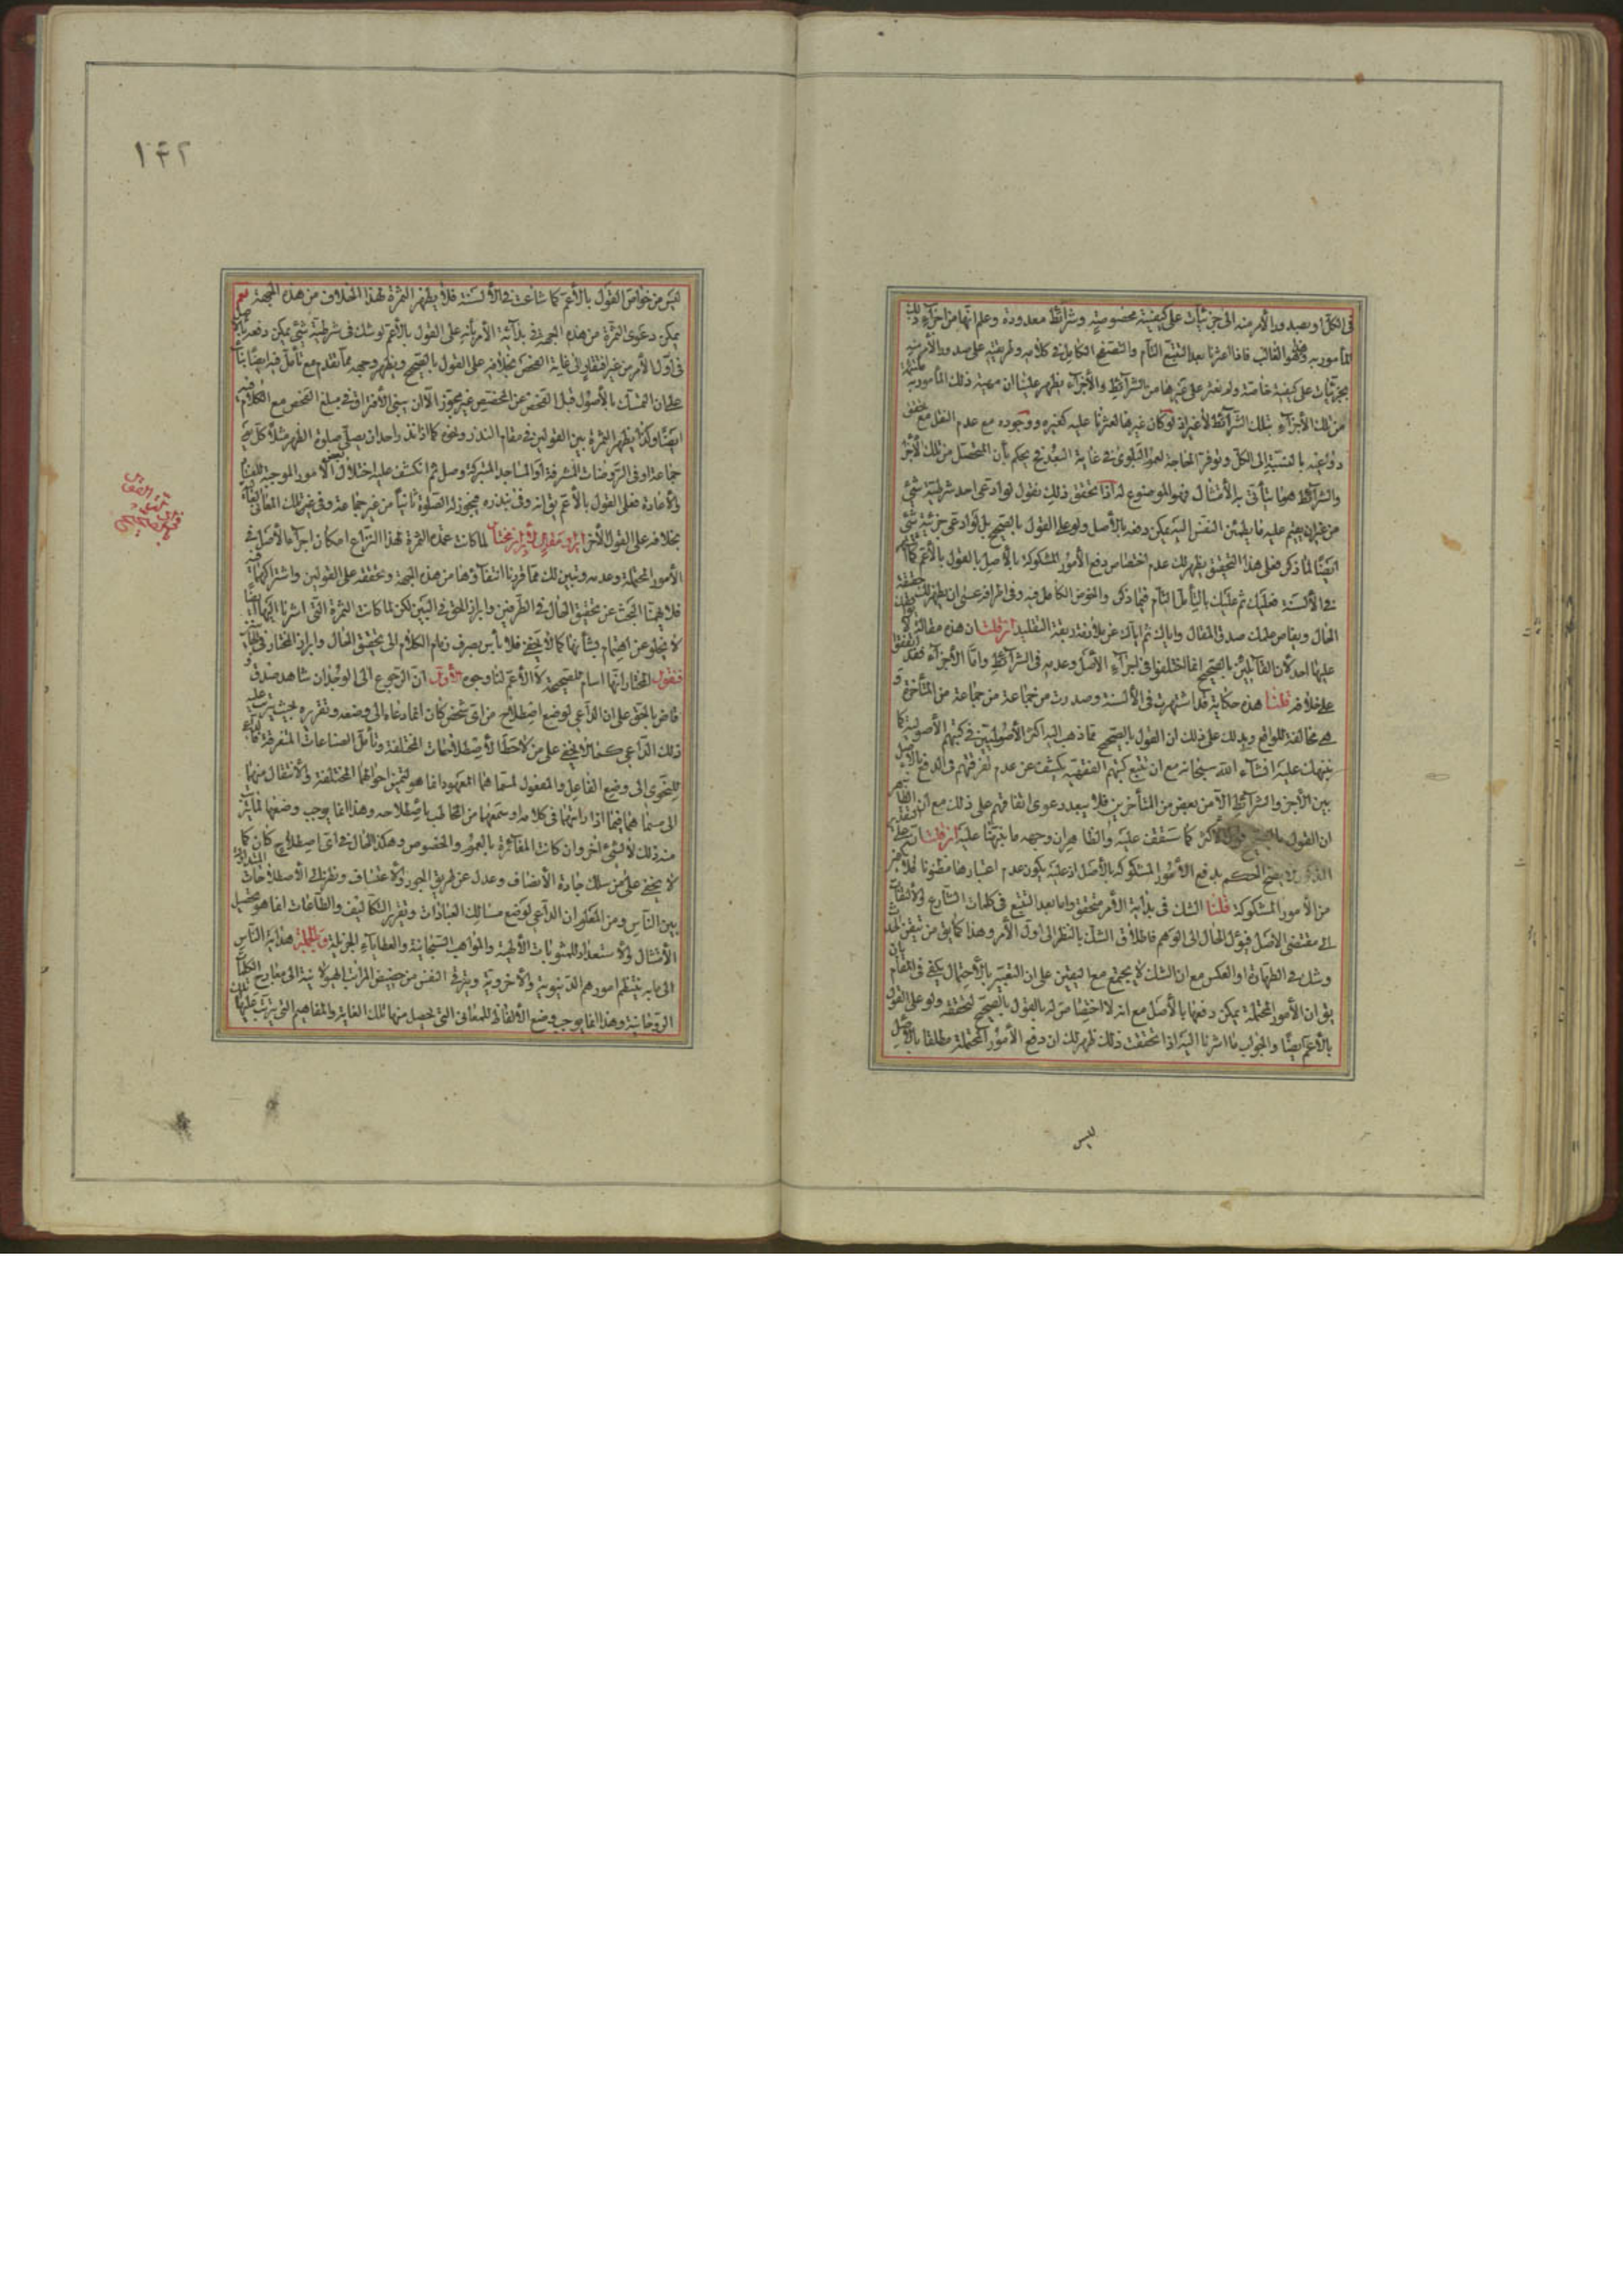 في الكل او بصدور الأمر منه الى جزئيات على كيفية مخصوصة وشرائط معدودة وعلم انها من اجزاء ذلك
المأمور به فهو الغالب فاذا عثرنا بعد التتبع التام والتصفح الكامل في كلامه وطريقته على صدور الأمر منه
بجزئيات على كيفية خاصة ولم نعثر على غيرها من الشرائط والأجزاء يظهر علينا ان مهية ذلك المأمور به
من تلك الأجزاء بتلك الشرائط لا غير اذ لو كان غيرها لعثرنا عليه كغيره ووجوده مع عدم النقل مع تحقق
دواعيه بالنسبة الى الكل وتوفر الحاجة لعموم البلوى في غاية البعد فح يحكم بأن المتحصل من تلك الأجزاء
والشرائط هو ما يتأتى به الأمتثال فهو الموضوع له اذا تحقق ذلك نقول لو ادعى احد شرطية شئ
من غير ان يقيم عليه ما يطمئن النفس اليه يمكن دفعه بالأصل ولو على القول بالصحيح بل لو ادعى جزئية شئ
ايضا لما ذكر فعلى هذا التحقيق يظهر لك عدم اختصاص دفع الأمور المشكوكة بالأصل بالقول بالأعم كما
في الألسنة فعليك ثم عليك بالتأمل التام فيما ذكر والخوض الكامل فيه وفي اطرافه عسى ان يظهر لك حقيقة
الحال ويفاض عليك صدق المقال واياك ثم اياك عن ملازمة ربقة التقليد ان قلت ان هذه مقالة لا
عليها احد لأن القائلين بالصحيح انما اختلفوا في اجراء الأصل وعدمه في الشرائط واما الأجزاء فقد اتفقوا
على خلافه قلنا هذه حكاية قد اشتهرت في الألسنة وصدرت من جماعة من المتأخرة و
هي مخالفة للواقع ويدلك على ذلك ان القول بالصحيح مما ذهب اليه اكثر الأصوليين في كتبهم الأصولية كما
ننبهك عليه انشاء الله سبحانه مع ان تتبع كتبهم الفقهية يكشف عن عدم تفرقتهم في الدفع بالأصل
بين الأجزاء والشرائط الا من بعض من المتأخرين فلا يبعد دعوى اتفاقهم على ذلك مع ان الظاهر
ان القول بالصحيح قول الأكثر كما ستقف عليه والظاهر ان وجهه ما نبهنا عليه ان قلت
يصح الحكم بدفع الأمور المشكوكة بالأصل اذ عليه يكون عدم اعتبارها مظنونا فلا
من الأمور المشكوكة قلنا الشك في بداية الأمر متحقق واما بعد التتبع في كلمات الشارع والألتفات
الى مقتضى الاصل فيؤل الحال الى الوهم فاطلاق الشك بالنظر الى اول الأمر وهذا كما يق من تيقن الحدث
وشك في الطهارة او العكس مع ان الشك لا يجتمع مع اليقين على ان التعبير بالأحتمال يكفي في المقام بأن
يق ان الأمور المحتملة يمكن دفعها بالأصل مع انه لا اختصاص له بالقول بالصحيح لتحققه ولو على القول
بالأعم ايضا والجواب ما اشرنا اليه اذا تحققت ذلك ظهر لك ان دفع الأمور المحتملة مطلقا بالأصل
ليس
١٤٢
ليس من خواص القول بالأعم كما شاعت في الألسنة فلا يظهر الثمرة لهذا الخلاف من هذه الجهة نعم
يمكن دعوى الثمرة من هذه الجهة في بداية الأمر بأنه على القول بالأعم لو شك في شرطية شئ يمكن دفعه بالأصل
في اول الأمر من غير افتقار الى غاية الفحص بخلافه على القول بالصحيح ويظهر وجهه مما تقدم مع تأمل فيه ايضا بناء
على ان التمسك بالأصول قبل الفحص عن المخصص غير مجوز الا ان يبنى الأفتراق في مبلغ الفحص مع الكلام فيه
ايضا وكذا يظهر الثمرة بين القولين في مقام النذر ونحوه كما اذا نذر واحد ان يصلى صلوة الظهر مثلا كل يوم
جماعة او في الروضات المشرفة او المساجد المتبركة وصل ثم انكشف عليه اختلال بعض الأمور الموجبة للقضاء
والأعادة فعلى القول بالأعم يق انه وفى بنذره فيجوز له الصلوة ثانيا من غير جماعة وفي غير تلك
بخلافه على القول الأخر لما كانت عمدة الثمرة لهذا النزاع امكان اجراء الأصل في
الأمور المحتملة وعدمه وتبين لك مما قررنا انتفاؤها من هذه الجهة وتحققه على القولين واشتراكهما فيه
فلا يهمنا البحث عن تحقيق الحال في الطرفين وابراز الحق في البين لكن لما كانت الثمرة التي اشرنا اليها ايضا
لا يخلو عن اهتمام بشأنها كما لا يخفى فلا بأس بصرف زمام الكلام الى تحقيق الحال وابراز المختار في المقام
فنقول المختار انها اسام للصحيحة لا الأعم لنا وجوه الأول ان الرجوع الى الوجدان شاهد صدق و
قاض بالحق على ان الداعي لوضع اصطلاح من اي شخص كان انما دعاه الى وضعه وتقرره بحيث يترتب عليه
ذلك الداعي كما لا يخفى على من لاحظ الأصطلاحات المختلفة وتأمل الصناعات المتفرقة
للنحوى الى وضع الفاعل والمفعول لمسماهما المعهود انما هو لتميز احوالهما المختلفة والأنتقال منهما
الى مسماهما فيما اذا رايتهما في كلام او سمعتهما من المخاطب باصطلاحه وهذا انما يوجب وضعهما لما
منه ذلك لا لشئ اخر وان كانت المغايرة بالعموم والخصوص وهكذا الحال في اي اصطلاح كان كما
لا يخفى على من سلك جادة الأنصاف وعدل عن طريق الجور والأعتساف ونظر في الأصطلاحات المتداولة
بين الناس ومن المعلوم ان الداعي لوضع مسالك العبادات وتقرير التكاليف والطاعات انما هو تحصيل
الأمتثال والأستعداد للمثوبات الألهية والمواهب السبحانية والعطاياء الجزيلة وبالجملة هداية الناس
الى ما به ينتظم امورهم الدنيوية والأخروية ويترقى النفس من حضيض المراتب الهيولانية الى معارج الكمالات
الروحانية وهذا انما يوجب وضع الألفاظ للمعاني التي يحصل منها تلك الغاية والمفاهيم التي يترتب عليها تلك